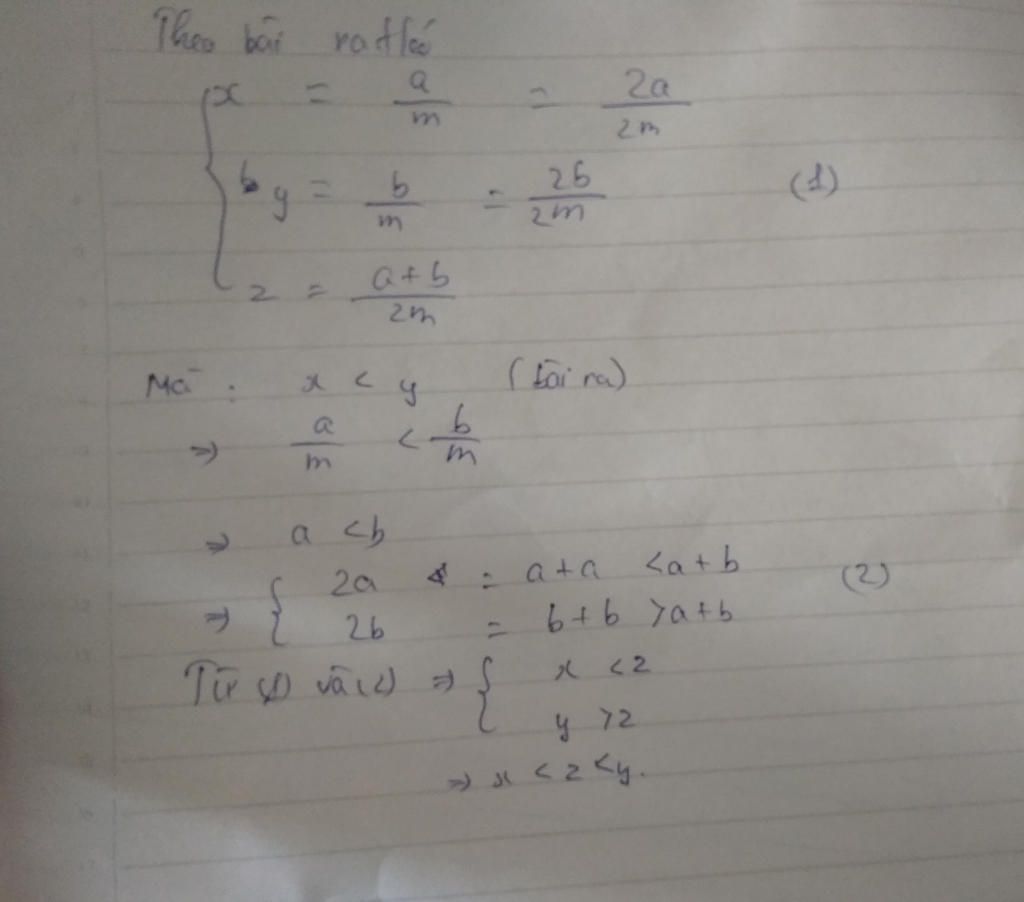 Theo bài ra ta có
x = a/m = 2a/2m
y = b/m = 2b/2m (1)
z = a+b/2m
Mà : x < y (bài ra)
⇒ a/m < b/m
⇒ a < b
⇒ { 2a = a+a < a+b
2b = b+b > a+b (2)
Từ (1) và (2) ⇒ { x < z
y > z
⇒ x < z < y.